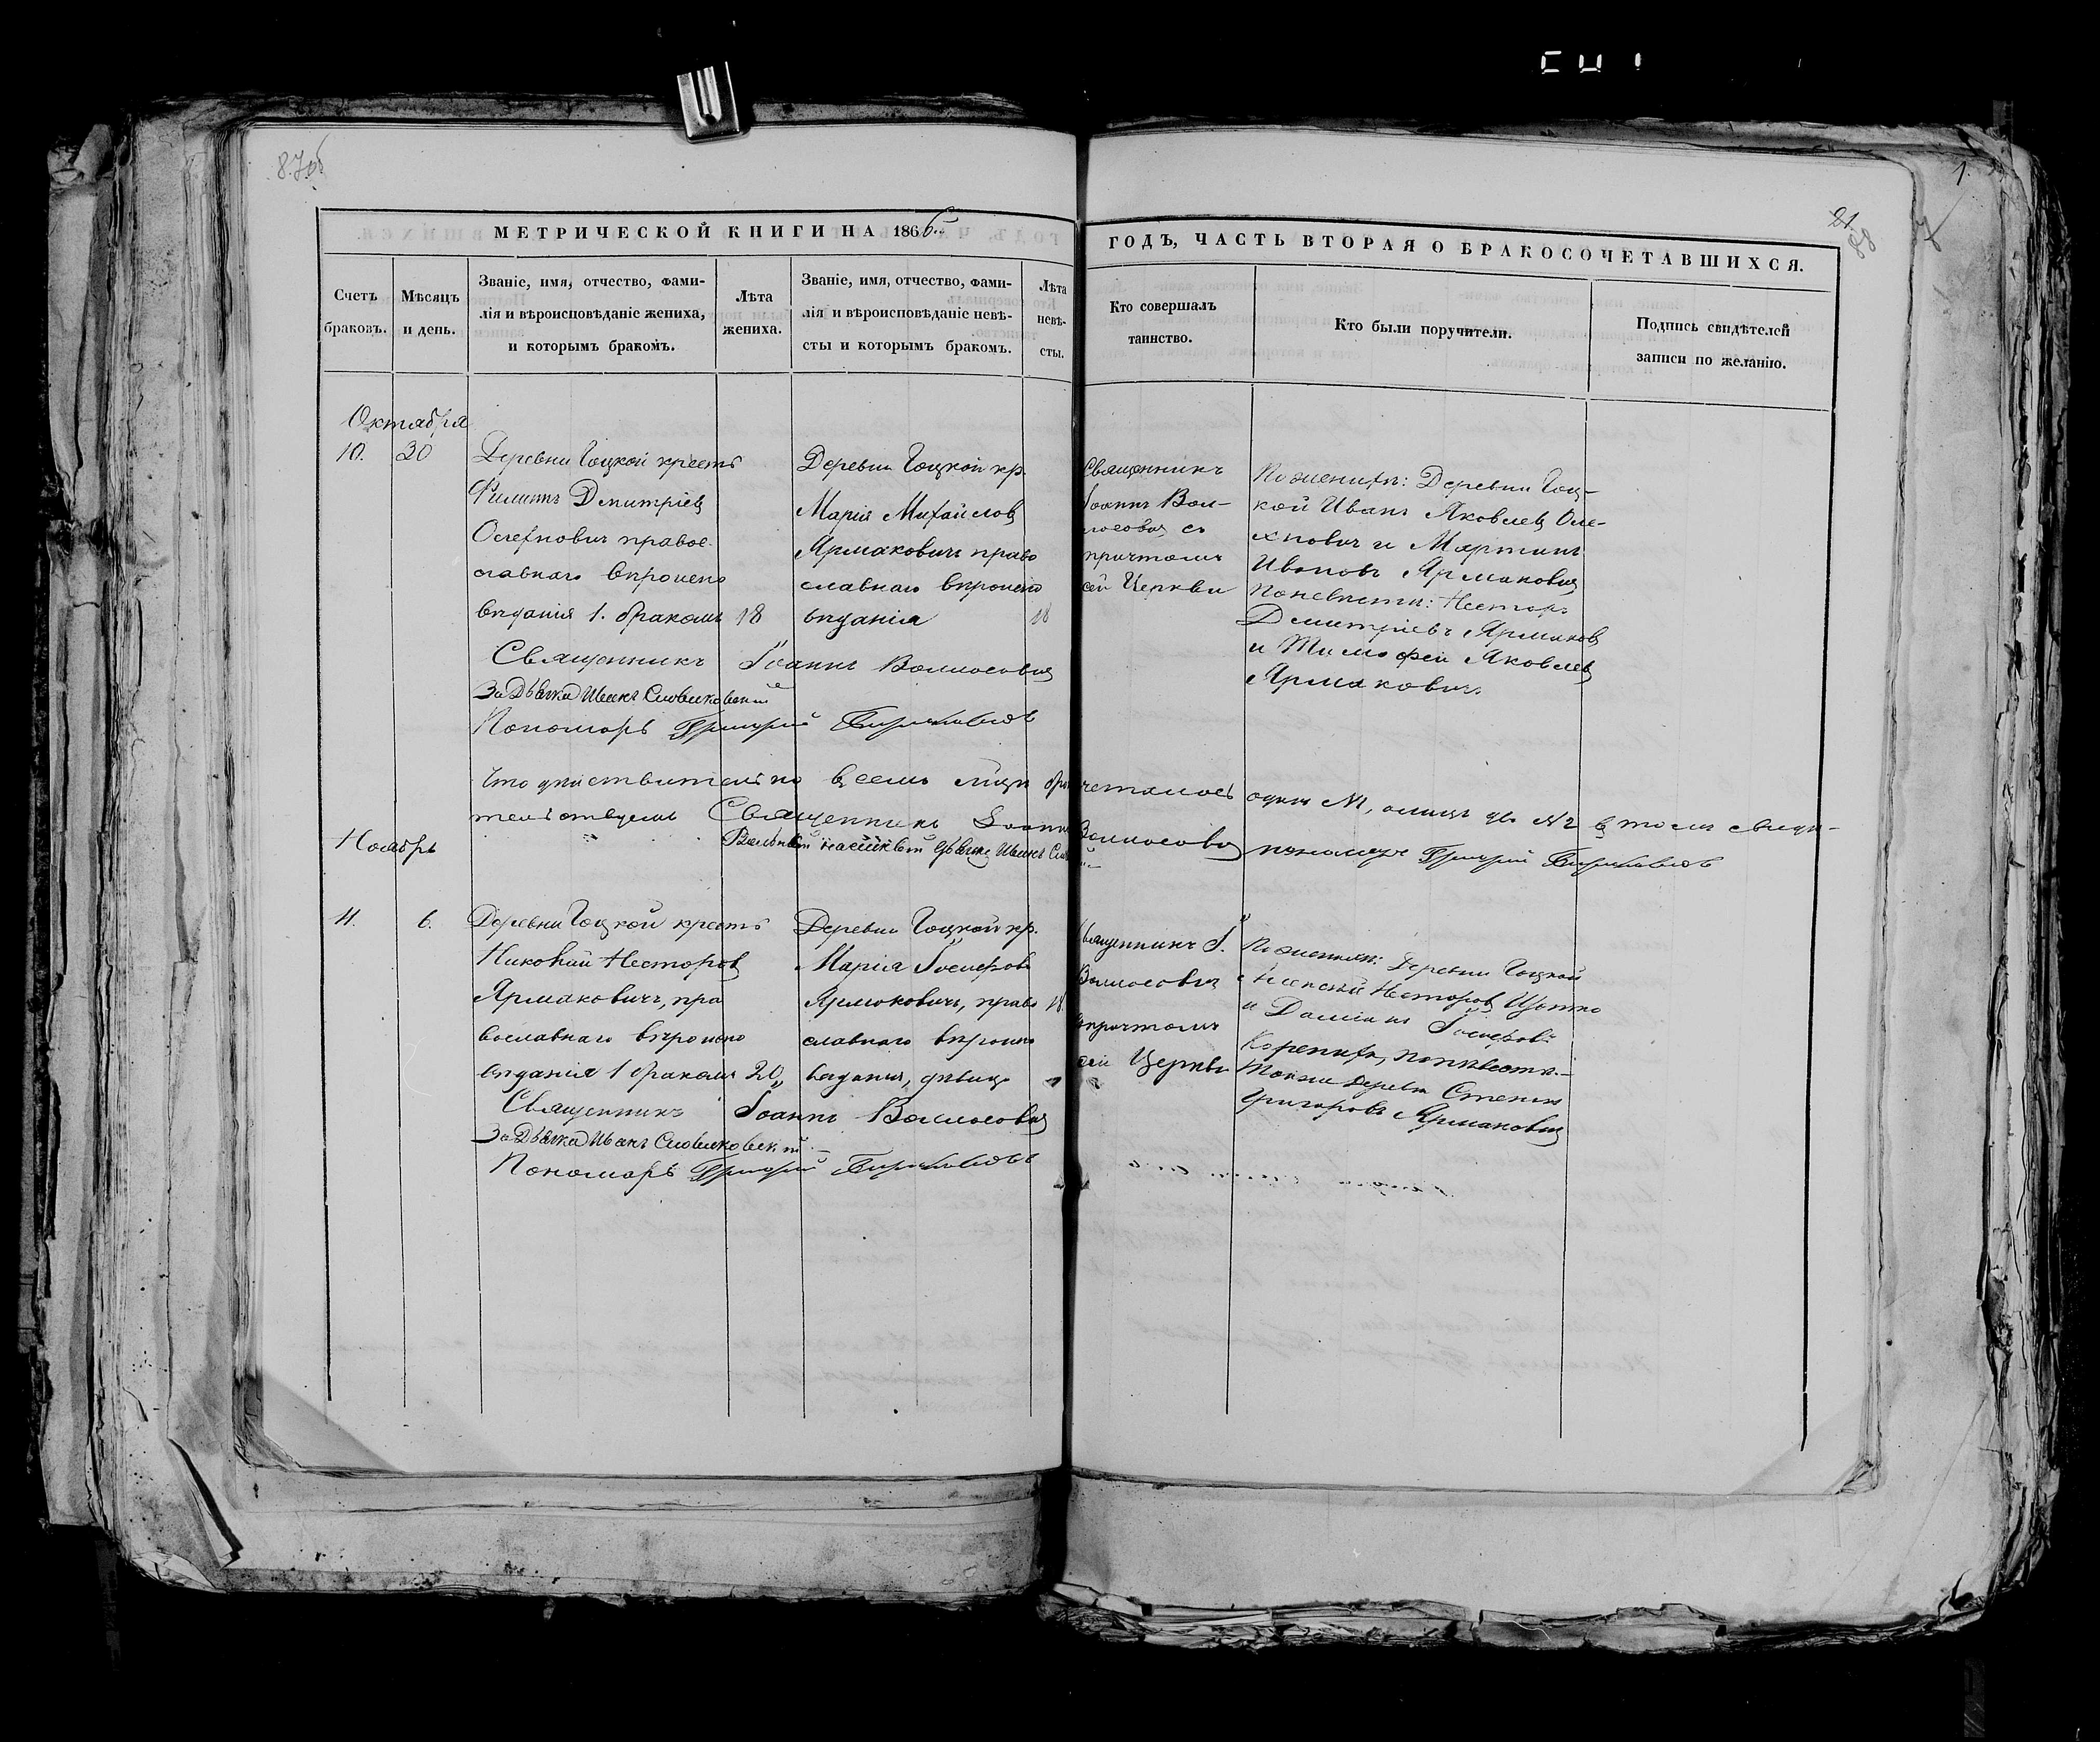 87об
1.
21.
88
МЕТРИЧЕСКОЙ КНИГИ НА 1866
ГОДЪ, ЧАСТЬ ВТОРАЯ О БРАКОСОЧЕТАВШИХСЯ.
Счетъ
браковъ.
Мѣсяцъ
и день.
Званіе, имя, отчество, фами-
лія и вѣроисповѣданіе жениха,
и которымъ бракомъ.
Лѣта
жениха.
Званіе, имя, отчество, фами-
лія и вѣроисповѣданіе невѣ-
сты и которымъ бракомъ.
Лѣта
невѣ-
сты.
Кто совершалъ
таинство.
Кто были поручители.
Подпись свидѣтелей
записи по желанію.
Октября
10. 30
Деревни Гоцкой крестъ
Филиппъ Дмитріев
Олехновичъ правос
славнаго вѣроиспо
вѣданія 1. бракомъ 18
Деревни Гоцкой кр.
Марія Михайлов
Ярмаковичъ право
славнаго вѣроиспо
вѣданія 18
Священникъ
Іоаннъ
съ
причтомъ
сей Церкви
По женихѣ: Деревни Гоц-
кой Иванъ Яковлев Оле-
хновичъ и Мартинъ
Ивановъ Ярмакович
По невѣсти: Несторъ
Дмитріевъ Ярмаков
и Тимофей Яковлев
Ярмаковичъ
Священникъ Іоаннъ
За Дьячка Иванъ
Пономарь Григорій
Что дѣйствительно въ семъ м-цѣ
четалось одинъ №, а лицъ два №2 в томъ свидѣ-
тельствуемъ Священникъ Іоаннъ
Иванъ
пономарь Григорій
Ноябрь
11. 6.
Деревни Гоцкой крестъ
Николай Несторов
Ярмаковичъ, пра
вославнаго вѣроиспо
вѣданія 1 бракомъ 20
Деревни Гоцкой кр.
Марія Іосифова
Ярмоковичъ, право 18.
славнаго вѣроиспо
вѣданія, дѣвица
Священникъ І.
причтомъ
сей Церкви
По женихѣ: Деревни Гоцкой
Несторов
и Даміанъ Іосифовъ
по невѣсти-
тойже Деревни Степанъ
Григоровъ Ярмакович
Священникъ Іоаннъ
За Дьячка Иванъ
Пономарь Григорій